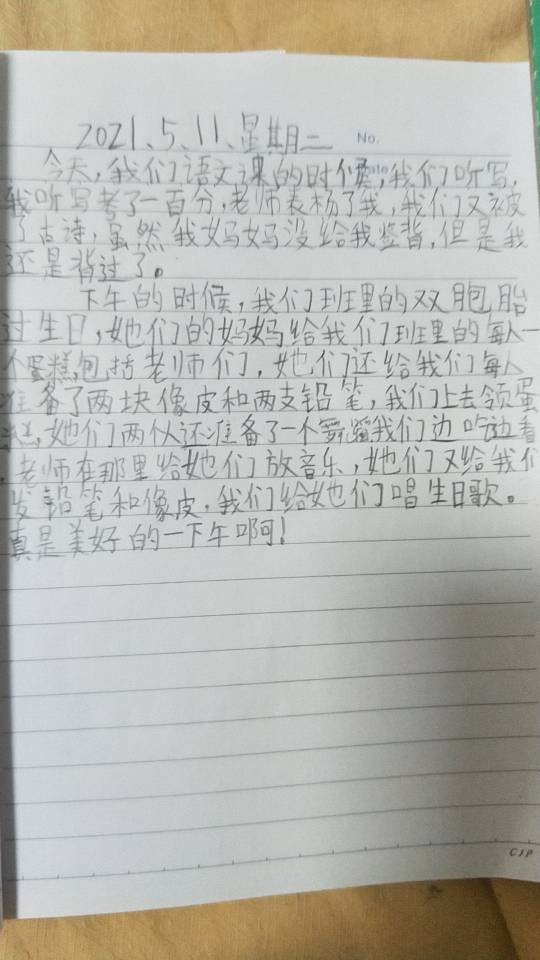 2021、5、11、星期二
No.
今天,我们语文课的时候,我们听写,
我听写考了一百分,老师表杨了我,我们又被
了古诗,虽然我妈妈没给我签背,但是我
还是背过了。
下午的时候,我们班里的双胞胎
过生日,她们的妈妈给我们班里的每人一
个蛋糕,包括老师们,她们还给我们每人
准备了两块像皮和两支铅笔,我们上去领蛋
糕,她们两从还准备了一个舞蹈我们边吃边看
,老师在那里给她们放音乐,她们又给我们
发铅笔和像皮,我们给她们唱生日歌。
真是美好的一下午啊!
CJP